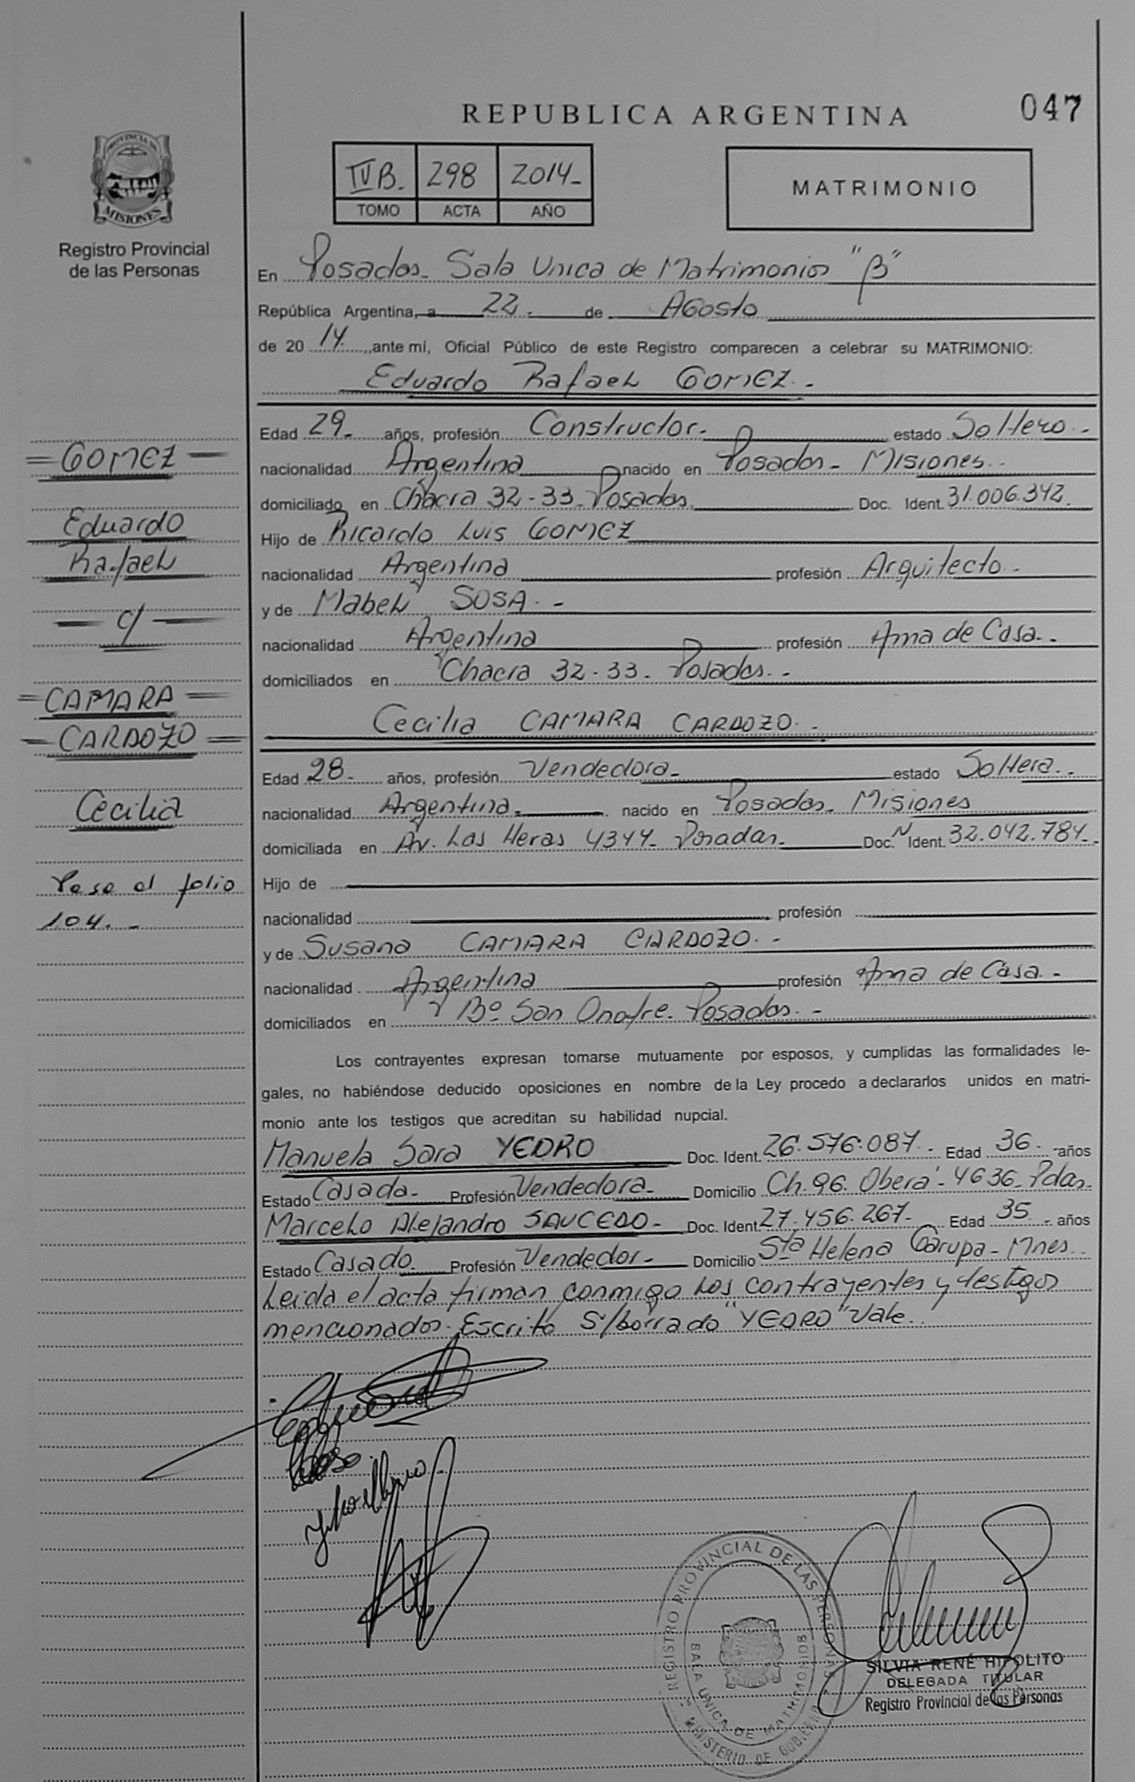 REPUBLICA ARGENTINA
047
PROVINCIA DE
MISIONES
Registro Provincial
de las Personas
IV B. 298 2014-
TOMO ACTA AÑO
MATRIMONIO
En Posadas- Sala Unica de Matrimonios "B"
República Argentina, a 22. de Agosto
de 2014, ante mí, Oficial Público de este Registro comparecen a celebrar su MATRIMONIO:
Eduardo Rafael GOMEZ.-
Edad 29- años, profesión Constructor- estado Soltero-
nacionalidad Argentina nacido en Posadas- Misiones.
domiciliado en Chacra 32-33. Posadas. Doc. Ident. 31.006.342.
Hijo de Ricardo Luis GOMEZ
nacionalidad Argentina profesión Arquitecto-
y de Mabel SOSA.-
nacionalidad Argentina profesión Ama de Casa.-
domiciliados en Chacra 32-33. Posadas.-
Cecilia CAMARA CARDOZO.-
Edad 28- años, profesión Vendedora- estado Soltera.-
nacionalidad Argentina.- nacido en Posadas- Misiones
domiciliada en Av. Las Heras 4347- Posadas. Doc. N Ident. 32.042.784.-
Hijo de
nacionalidad profesión
y de Susana CAMARA CARDOZO.-
nacionalidad Argentina profesión Ama de Casa.-
domiciliados en Bº San Onofre. Posadas.-
Los contrayentes expresan tomarse mutuamente por esposos, y cumplidas las formalidades le-
gales, no habiéndose deducido oposiciones en nombre de la Ley procedo a declararlos unidos en matri-
monio ante los testigos que acreditan su habilidad nupcial.
Manuela Sara YEDRO Doc. Ident. 26.576.087.- Edad 36.- años
Estado Casada- Profesión Vendedora- Domicilio Ch. 96. Oberá- 4636- Pdas.
Marcelo Alejandro SAUCEDO- Doc. Ident. 27.456.267- Edad 35- años
Estado Casado. Profesión Vendedor- Domicilio Sta Helena Garupa- Mnes.
Leida el acta firman conmigo los contrayentes y testigos
mencionados. Escrito S/borrado "YEDRO" Vale.
GOMEZ
Eduardo
Rafael
c/
CAMARA
CARDOZO
Cecilia
Pase al folio
104.-
REGISTRO PROVINCIAL DE LAS PERSONAS
SALA UNICA DE MATRIMONIOS
MINISTERIO DE GOBIERNO
SILVIA RENÉ HIPOLITO
DELEGADA TITULAR
Registro Provincial de las Personas